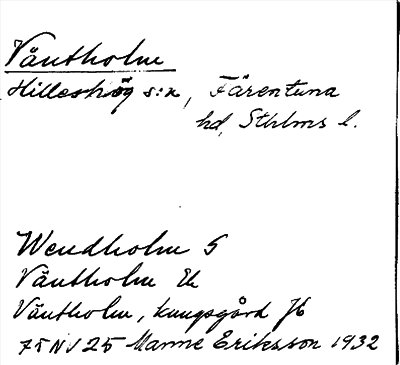 Väntholm
Hilleshög s:n, Färentuna
hd, Sthlms l.
Wendholm S
Väntholm Ek
Väntholm, kungsgård J6
75NV25 Manne Eriksson 1932